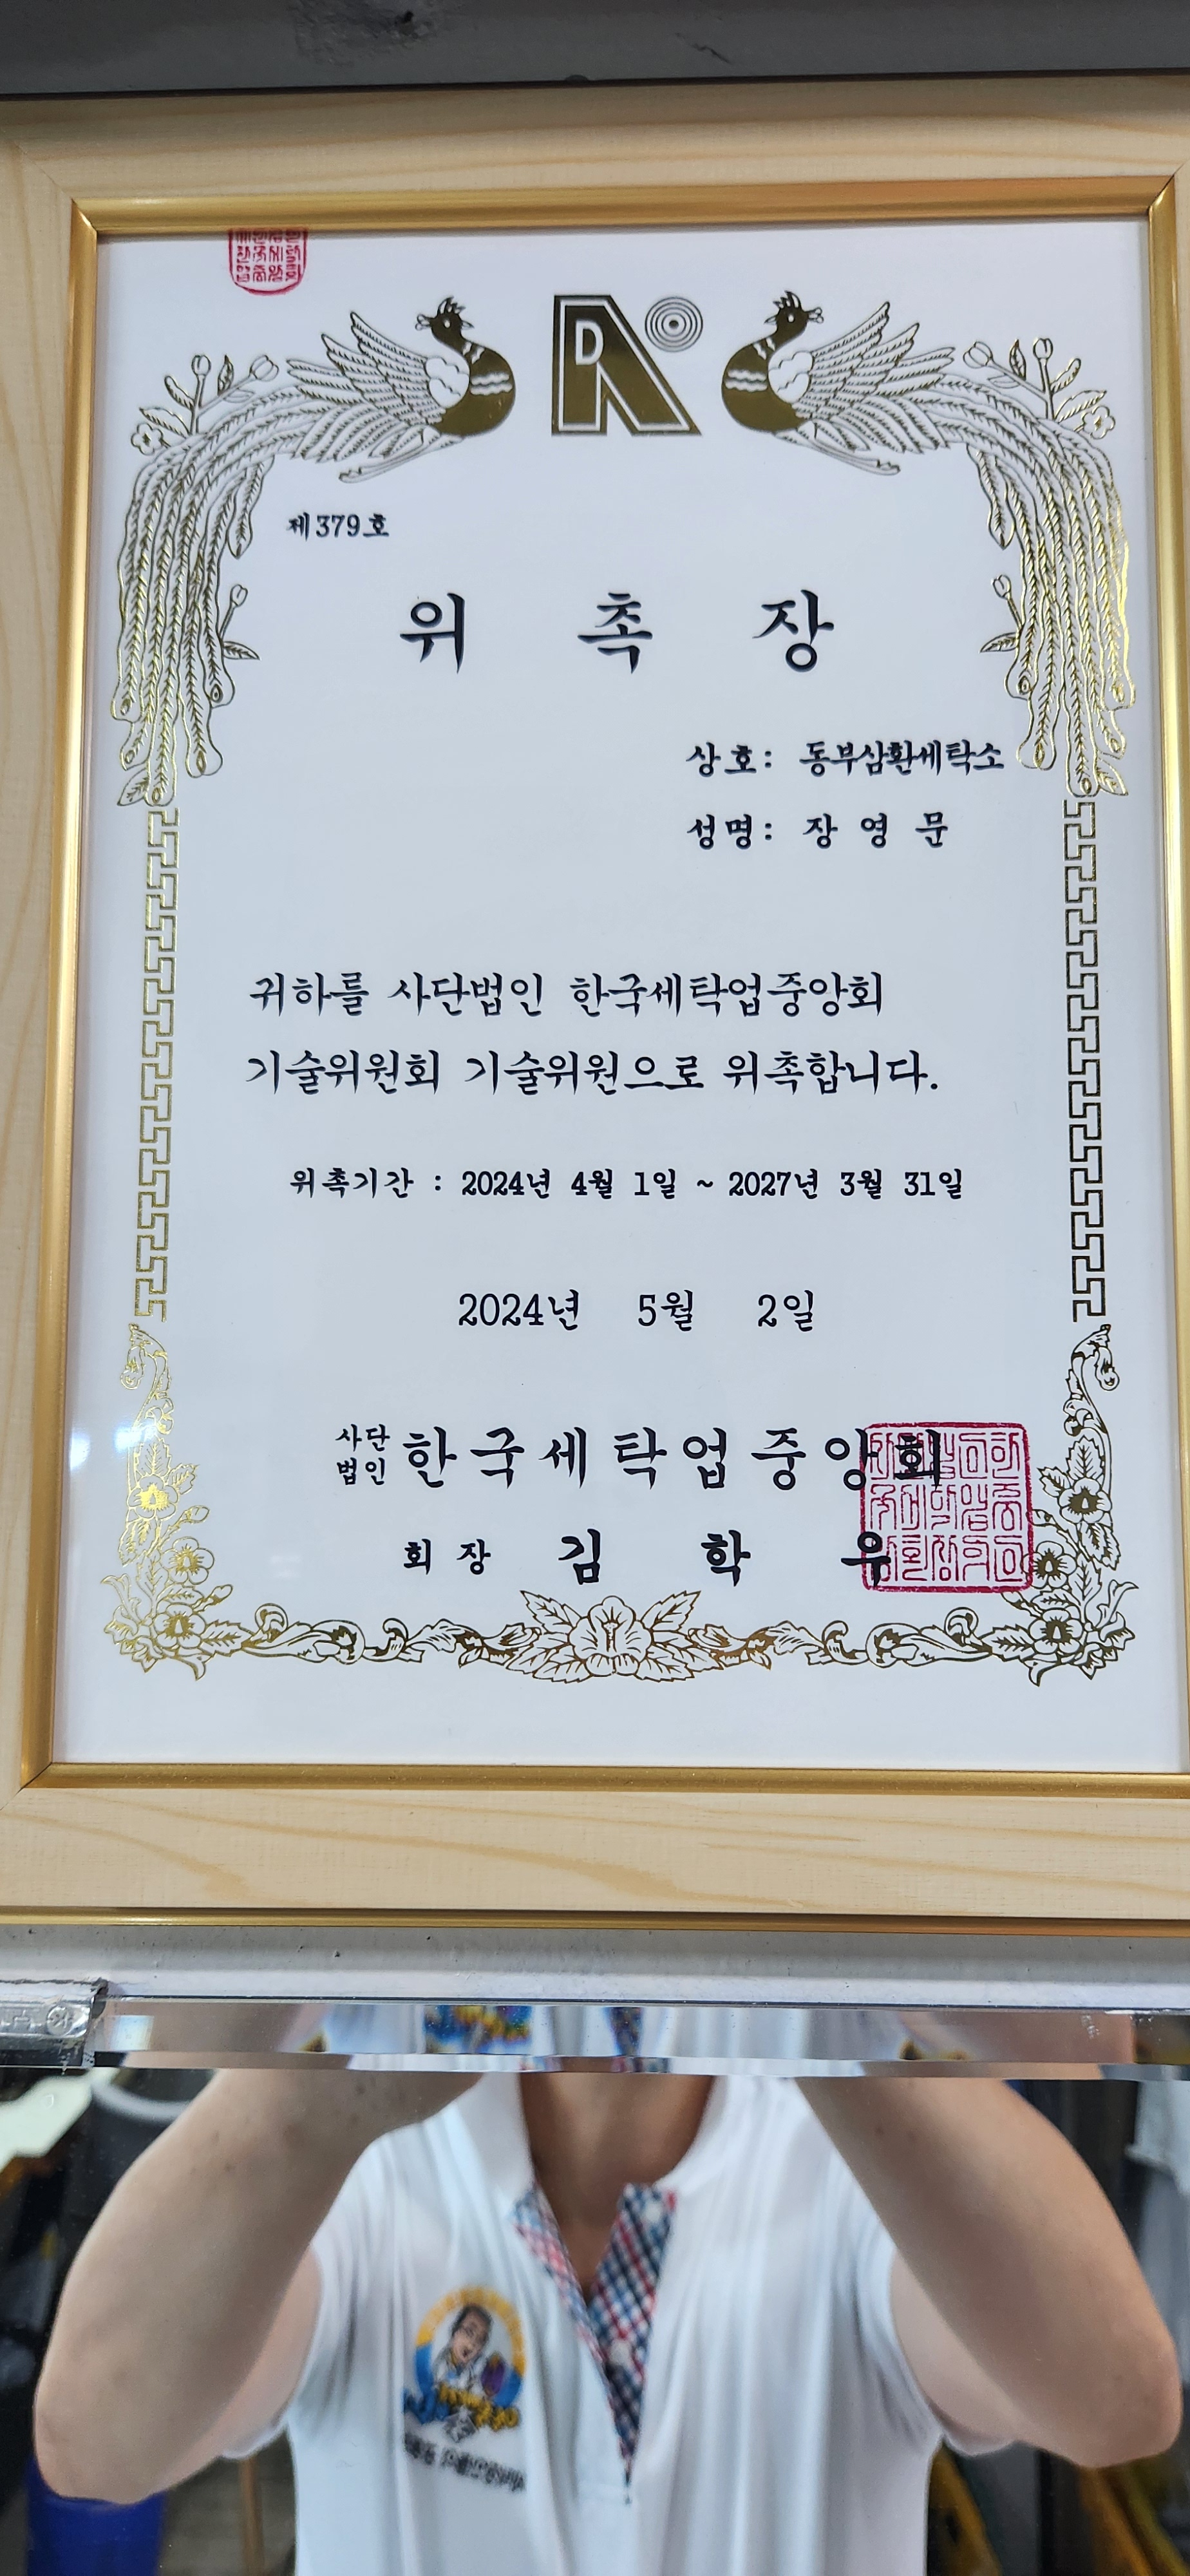 제379호
위 촉 장
상호: 동부삼환세탁소
성명: 장 영 문
귀하를 사단법인 한국세탁업중앙회
기술위원회 기술위원으로 위촉합니다.
위촉기간 : 2024년 4월 1일 ~ 2027년 3월 31일
2024년 5월 2일
사단법인 한국세탁업중앙회
회장 김 학 우